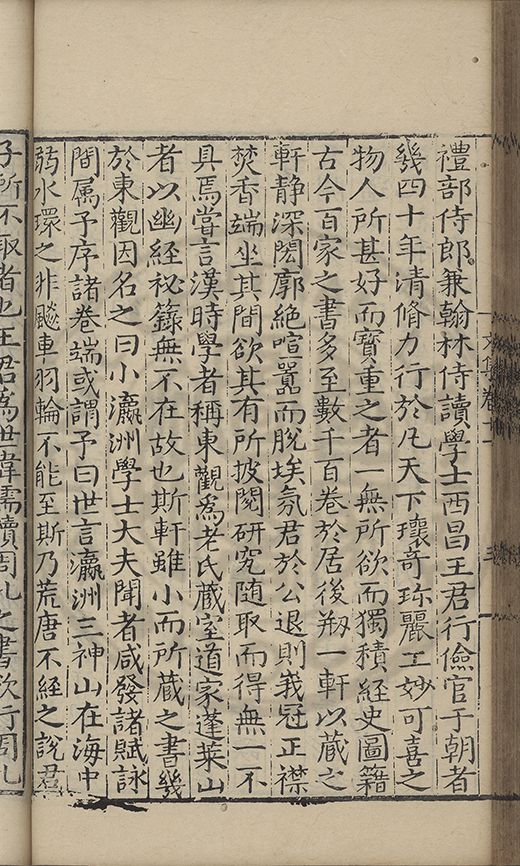 文集卷
三
禮部侍郎兼翰林侍讀學士西昌王君行儉官于朝者
幾四十年清脩力行於凡天下瓌奇珎麗工妙可喜之
物人所甚好而寶重之者一無所欲而獨積經史圖籍
古今百家之書多至數千百卷於居後剏一軒以藏之
軒静深閎廓絶喧囂而脫埃氛君於公退則峩冠正襟
焚香端坐其間欲其有所披閱研究隨取而得無一不
具焉嘗言漢時學者稱東觀爲老氏藏室道家蓬萊山
者以幽經祕籙無不在故也斯軒雖小而所藏之書幾
於東觀因名之曰小瀛洲學士大夫聞者咸發諸賦詠
間属予序諸卷端或謂予曰世言瀛洲三神山在海中
弱水環之非飈車羽輪不能至斯乃荒唐不經之說君
子所不取者也王君爲世偉儒讀周孔之書欲行周孔